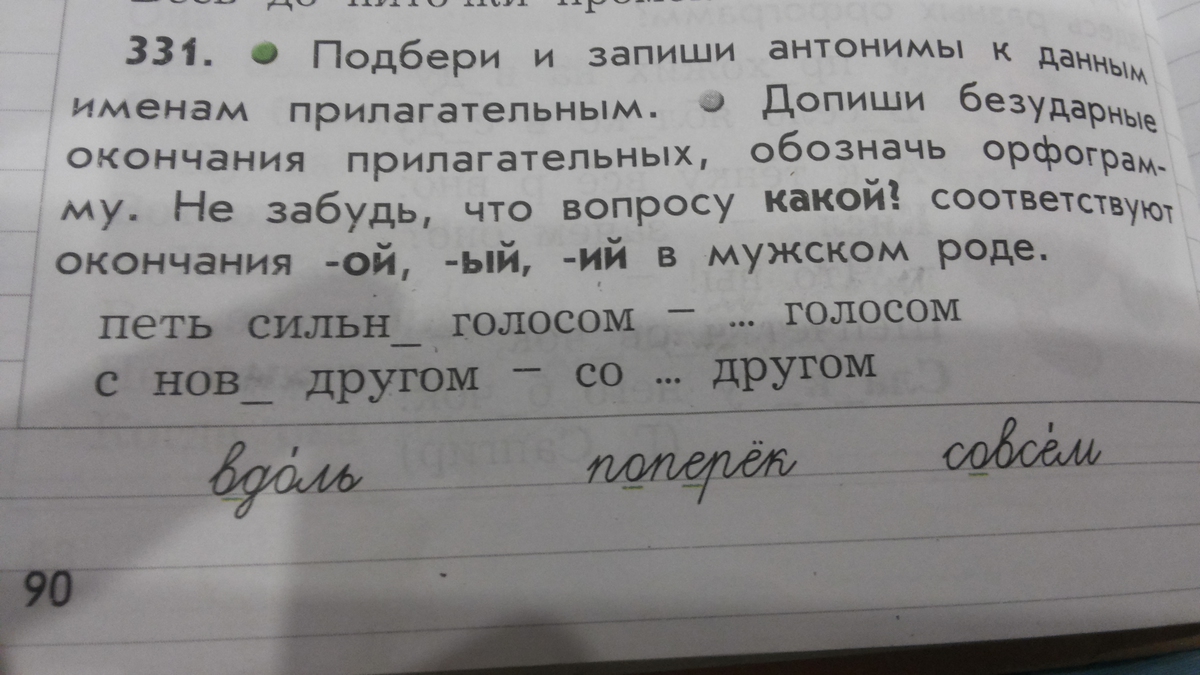 331. Подбери и запиши антонимы к данным
именам прилагательным. Допиши безударные
окончания прилагательных, обозначь орфограм-
му. Не забудь, что вопросу какой? соответствуют
окончания -ой, -ый, -ий в мужском роде.
петь сильн_ голосом – ... голосом
с нов_ другом – со ... другом
вдо́ль поперёк совсе́м
90